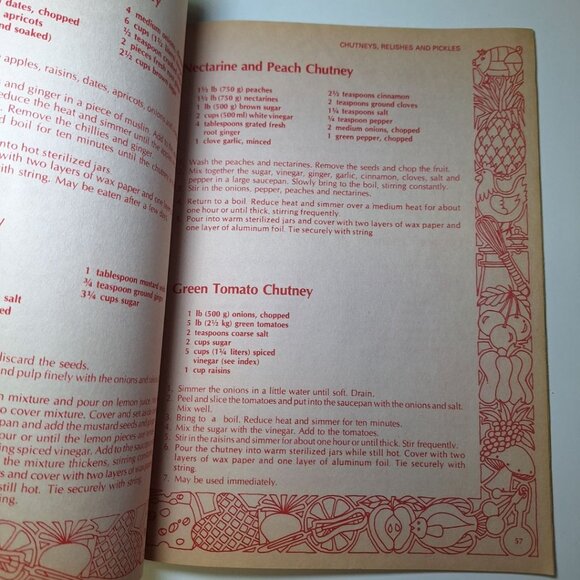 dates, chopped
apricots
and soaked)
4 medium
6 cups (1½
½ teaspoon
2 pieces fresh
2½ cups brown
apples, raisins, dates, apricots, onions
and ginger in a piece of muslin. Add to
reduce the heat and simmer until
Remove the chillies and ginger
boil for ten minutes until the chutney is
into hot sterilized jars
with two layers of wax paper and one
with string. May be eaten after a few days.
1 tablespoon mustard
¾ teaspoon ground ginger
3¼ cups sugar
salt
(see index)
discard the seeds.
and pulp finely with the onions and
mixture and pour on lemon juice,
to cover mixture. Cover and set aside
pan and add the mustard seeds and
hour or until the lemon pieces are
spicing vinegar. Add to the
the mixture thickens, stirring constantly
still hot. Tie securely with
string.
CHUTNEYS, RELISHES AND PICKLES
Nectarine and Peach Chutney
1½ lb (750 g) peaches
1½ lb (750 g) nectarines
1 lb (500 g) brown sugar
2 cups (500 ml) white vinegar
4 tablespoons grated fresh
root ginger
1 clove garlic, minced
2½ teaspoons cinnamon
2 teaspoons ground cloves
1¼ teaspoons salt
¼ teaspoon pepper
2 medium onions, chopped
1 green pepper, chopped
Wash the peaches and nectarines. Remove the seeds and chop the fruit.
Mix together the sugar, vinegar, ginger, garlic, cinnamon, cloves, salt and
pepper in a large saucepan. Slowly bring to the boil, stirring constantly.
Stir in the onions, pepper, peaches and nectarines.
Return to a boil. Reduce heat and simmer over a medium heat for about
one hour or until thick, stirring frequently.
Pour into warm sterilized jars and cover with two layers of wax paper and
one layer of aluminum foil. Tie securely with string
Green Tomato Chutney
1 lb (500 g) onions, chopped
5 lb (2½ kg) green tomatoes
2 teaspoons coarse salt
2 cups sugar
5 cups (1¼ liters) spiced
vinegar (see index)
1 cup raisins
1. Simmer the onions in a little water until soft. Drain.
2. Peel and slice the tomatoes and put into the saucepan with the onions and salt.
Mix well.
3. Bring to a boil. Reduce heat and simmer for ten minutes.
4. Mix the sugar with the vinegar. Add to the tomatoes.
5. Stir in the raisins and simmer for about one hour or until thick. Stir frequently.
6 Pour the chutney into warm sterilized jars while still hot. Cover with two
layers of wax paper and one layer of aluminum foil. Tie securely with
string.
7. May be used immediately.
57